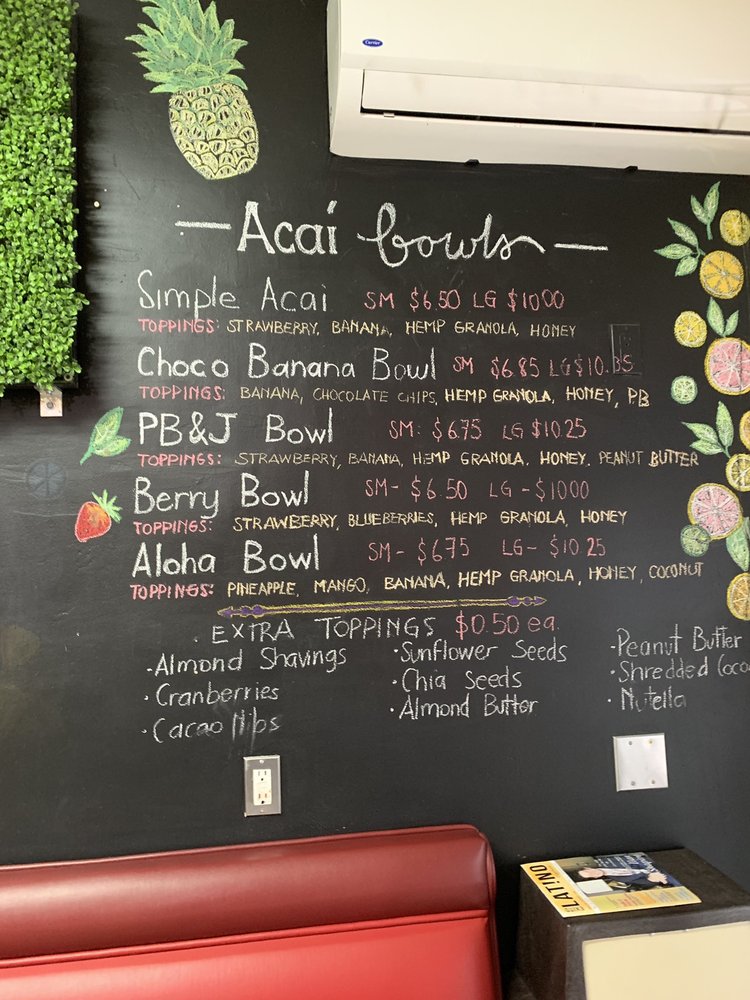 Carrier
—Acaí bowls—
Simple Acai SM $6.50 LG $1000
TOPPINGS: STRAWBERRY, BANANA, HEMP GRANOLA, HONEY
Choco Banana Bowl SM $6.85 LG $10.35
TOPPINGS: BANANA, CHOCOLATE CHIPS, HEMP GRANOLA, HONEY, PB
PB&J Bowl SM: $6.75 LG $10.25
TOPPINGS: STRAWBERRY, BANANA, HEMP GRANOLA, HONEY, PEANUT BUTTER
Berry Bowl SM- $6.50 LG -$1000
TOPPINGS: STRAWBERRY, BLUEBERRIES, HEMP GRANOLA, HONEY
Aloha Bowl SM- $675 LG- $10.25
TOPPINGS: PINEAPPLE, MANGO, BANANA, HEMP GRANOLA, HONEY, COCONUT
EXTRA TOPPINGS $0.50 ea.
·Almond Shavings
·Cranberries
·Cacao Nibs
·Sunflower Seeds
·Chia Seeds
·Almond Butter
·Peanut Butter
·Shredded Coco
·Nutella
LATINO